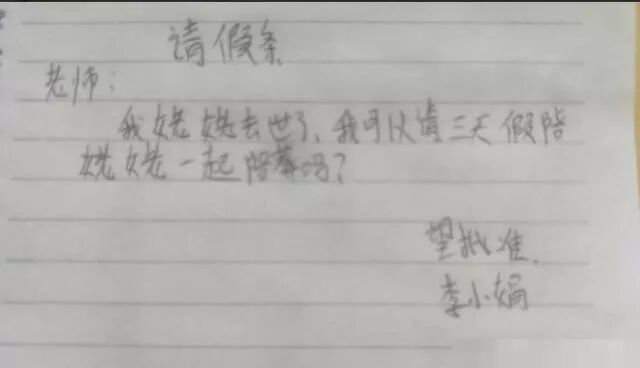 请假条
老师：
我姥姥去世了，我可以请三天假陪
姥姥一起陪葬吗？
望批准.
李小娟